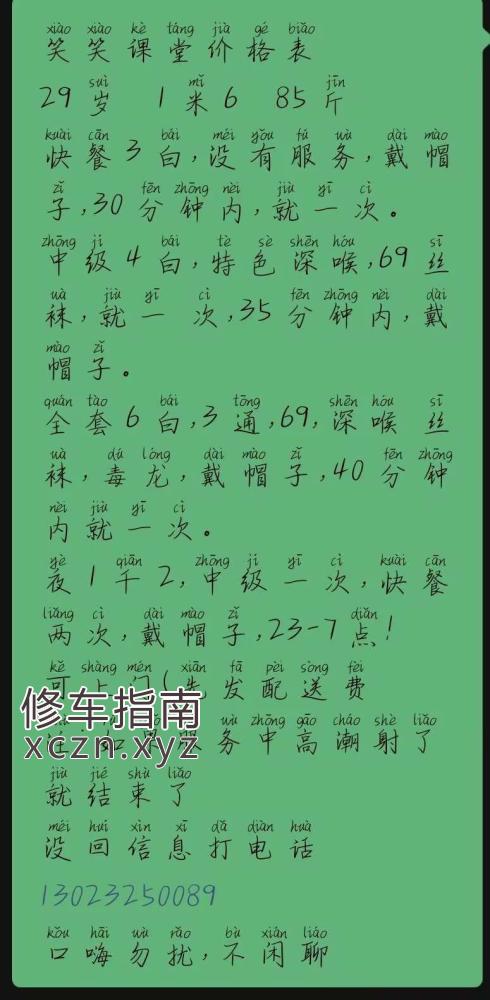 xiào xiào kè táng jià gé biǎo
笑笑课堂价格表
suì mǐ jīn
29岁 1米6 85斤
kuài cān bái méi yǒu fú wù dài mào
快餐3白,没有服务,戴帽
zǐ fēn zhōng nèi jiù yī cì
子,30分钟内,就一次。
zhōng jí bái tè sè shēn hóu sī
中级4白,特色深喉,69丝
wà jiù yī cì fēn zhōng nèi dài
袜,就一次,35分钟内,戴
mào zǐ
帽子。
quán tào bái tōng shēn hóu sī
全套6白,3通,69,深喉丝
wà dú lóng dài mào zǐ fēn zhōng
袜,毒龙,戴帽子,40分钟
nèi jiù yī cì
内就一次。
yè qiān zhōng jí yī cì kuài cān
夜1千2,中级一次,快餐
liǎng cì dài mào zǐ diǎn
两次,戴帽子,23-7点!
kě shàng mén xiān fā pèi sòng fèi
可上门(先发配送费
修车指南
xczn.xyz
wù zhōng gāo cháo shè liǎo
服务中高潮射了
jiù jié shù liǎo
就结束了
méi huí xìn xī dǎ diàn huà
没回信息打电话
13023250089
kǒu hāi wù rǎo bù xián liáo
口嗨勿扰,不闲聊